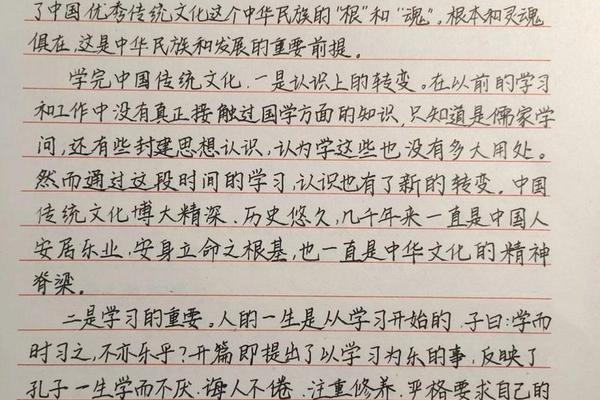 了中国优秀传统文化这个中华民族的“根”和“魂”。根本和灵魂
俱在,这是中华民族和发展的重要前提。
学完中国传统文化,一是认识上的转变。在以前的学习
和工作中没有真正接触过国学方面的知识,只知道是儒家学
问,还有些封建思想认识,认为学这些也没有多大用处。
然而通过这段时间的学习,认识也有了新的转变。中国
传统文化博大精深、历史悠久,几千年来一直是中国人
安居乐业,安身立命之根基,也一直是中华文化的精神
脊梁。
二是学习的重要。人的一生是从学习开始的,子曰:学而
时习之,不亦乐乎?开篇即提出了以学习为乐的事,反映了
孔子一生学而不厌、诲人不倦、注重修养、严格要求自己的